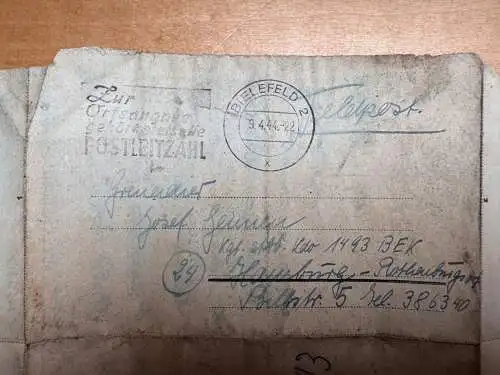 Zur
Ortsangabe
gehört die
POSTLEITZAHL
BIELEFELD 2
9.4.44.-22
x
Feldpost
Grenadier
Josef
Kgf. Arb. Kdo 1493 BEK
(24) Hamburg - Rothenburgsort
Billstr 5 Tel. 386340